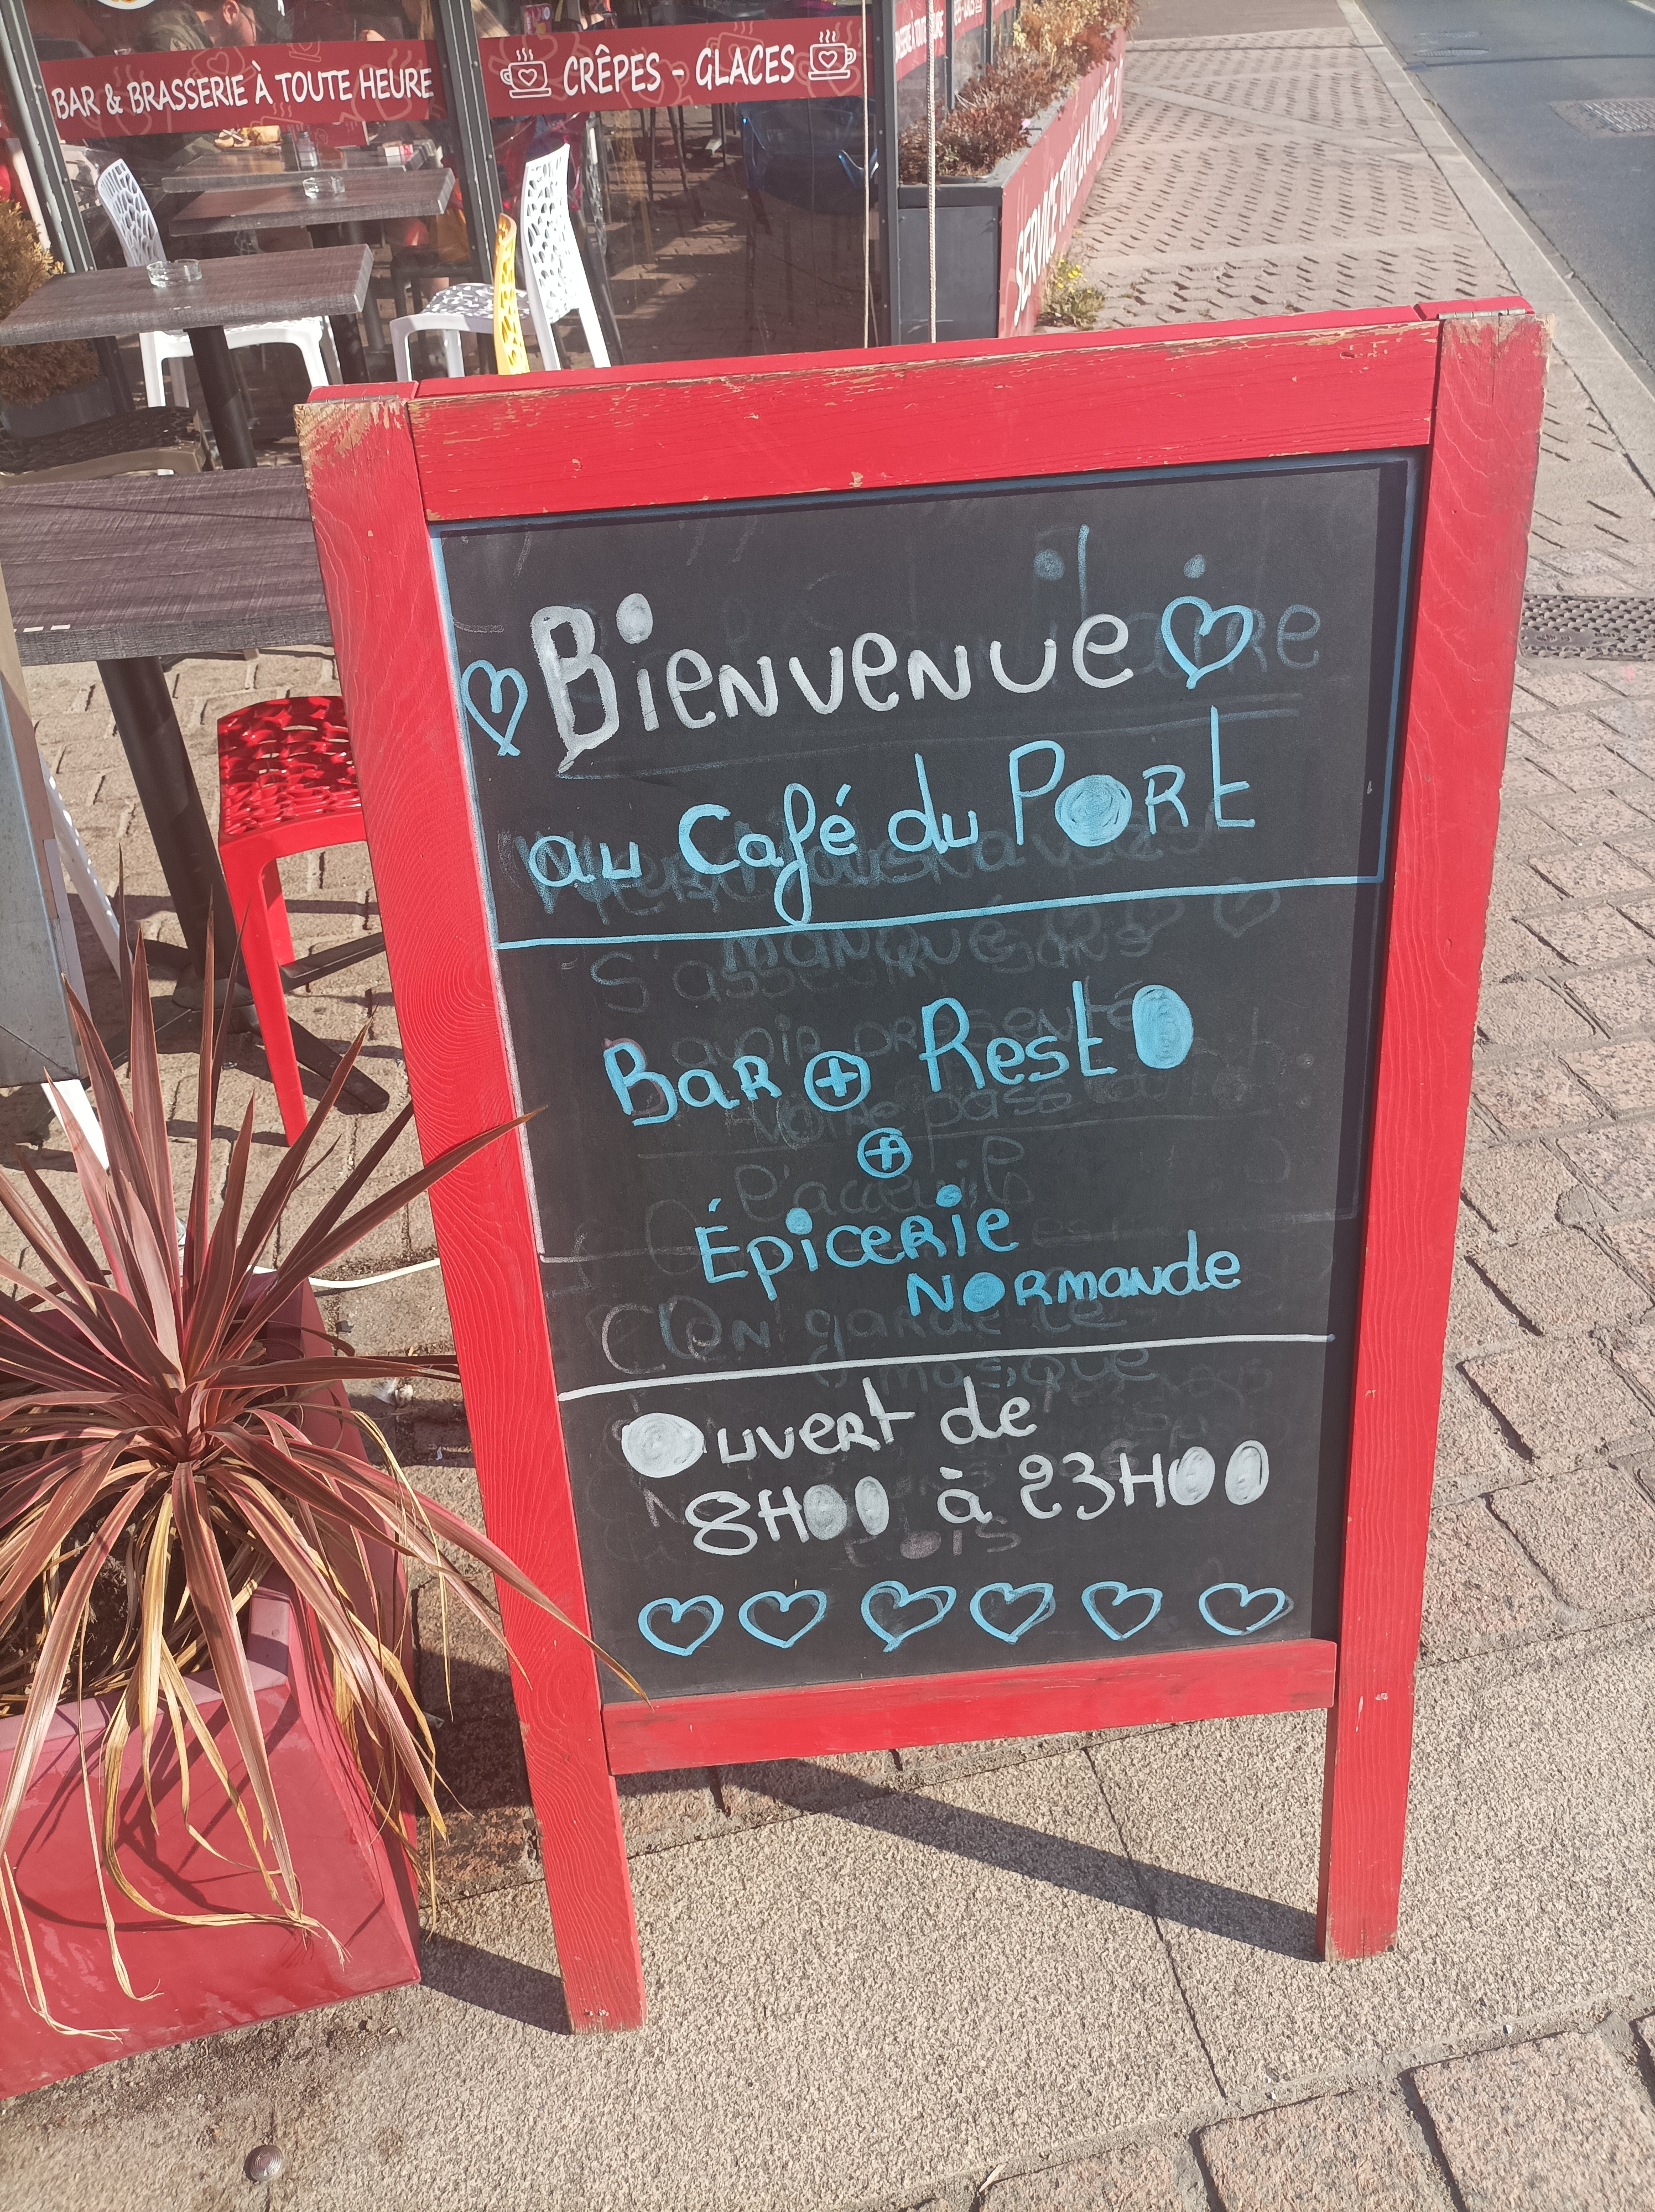 BAR & BRASSERIE À TOUTE HEURE
CRÊPES - GLACES
SERVICE TOUTE LA
Bienvenue
au Café du PORt
Bar + Resto
+
Épicerie
Normande
Ouvert de
8H00 à 23H00